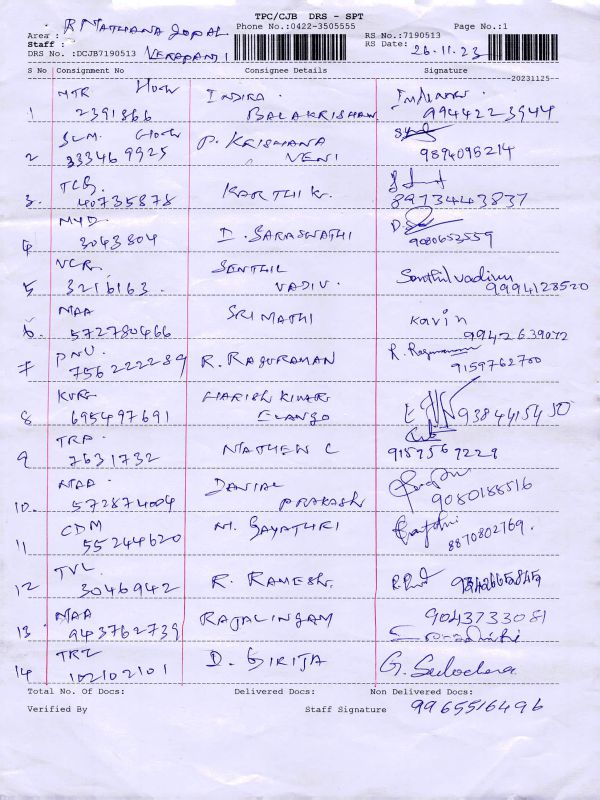 TPC/CJB DRS - SPT
Phone No.:0422-3505555 Page No.:1
Area : R Mathana Gopal
Staff :
DRS No. :DCJB7190513 VERAPANDI
RS No.:7190513
RS Date: 26.11.23
S No Consignment No Consignee Details Signature
20231125
1 MTR
2391866 INDIRA. BALAKRISHAN 9944223944
2 SLM
333469925 P. KRISHANA VENI 9894098214
3. TCB.
40735878 KARTHIK. 8973443837
4 MYD.
3043804 D. SARASWATHI 9080653559
5 VCR.
3216163. SENTHIL VADIV. Senthil vadivu 9994128520
6. MAA
572780466 SRIMATHI Kavin 9942639072
7 PNU.
756222289 R. RAGURAMAN R. Raguraman 9159762700
8 KVRF
695497691 HARISH KUMAR ELANGO 9384415450
9 TRP.
7631732 MATHEW C 9159567229
10. MAA.
572874004 DANIAL PRAKASH 9080188516
11 CDM
55244620 M. GAYATHRI 8870802769.
12 TVL.
3046942 R. RAMESH.
13 MAA
943762739 RAJALINGAM 9043733081
14 TRZ
102102101 D. GIRIJA G. Sulochana
Total No. Of Docs: Delivered Docs: Non Delivered Docs:
Verified By Staff Signature 9965516496